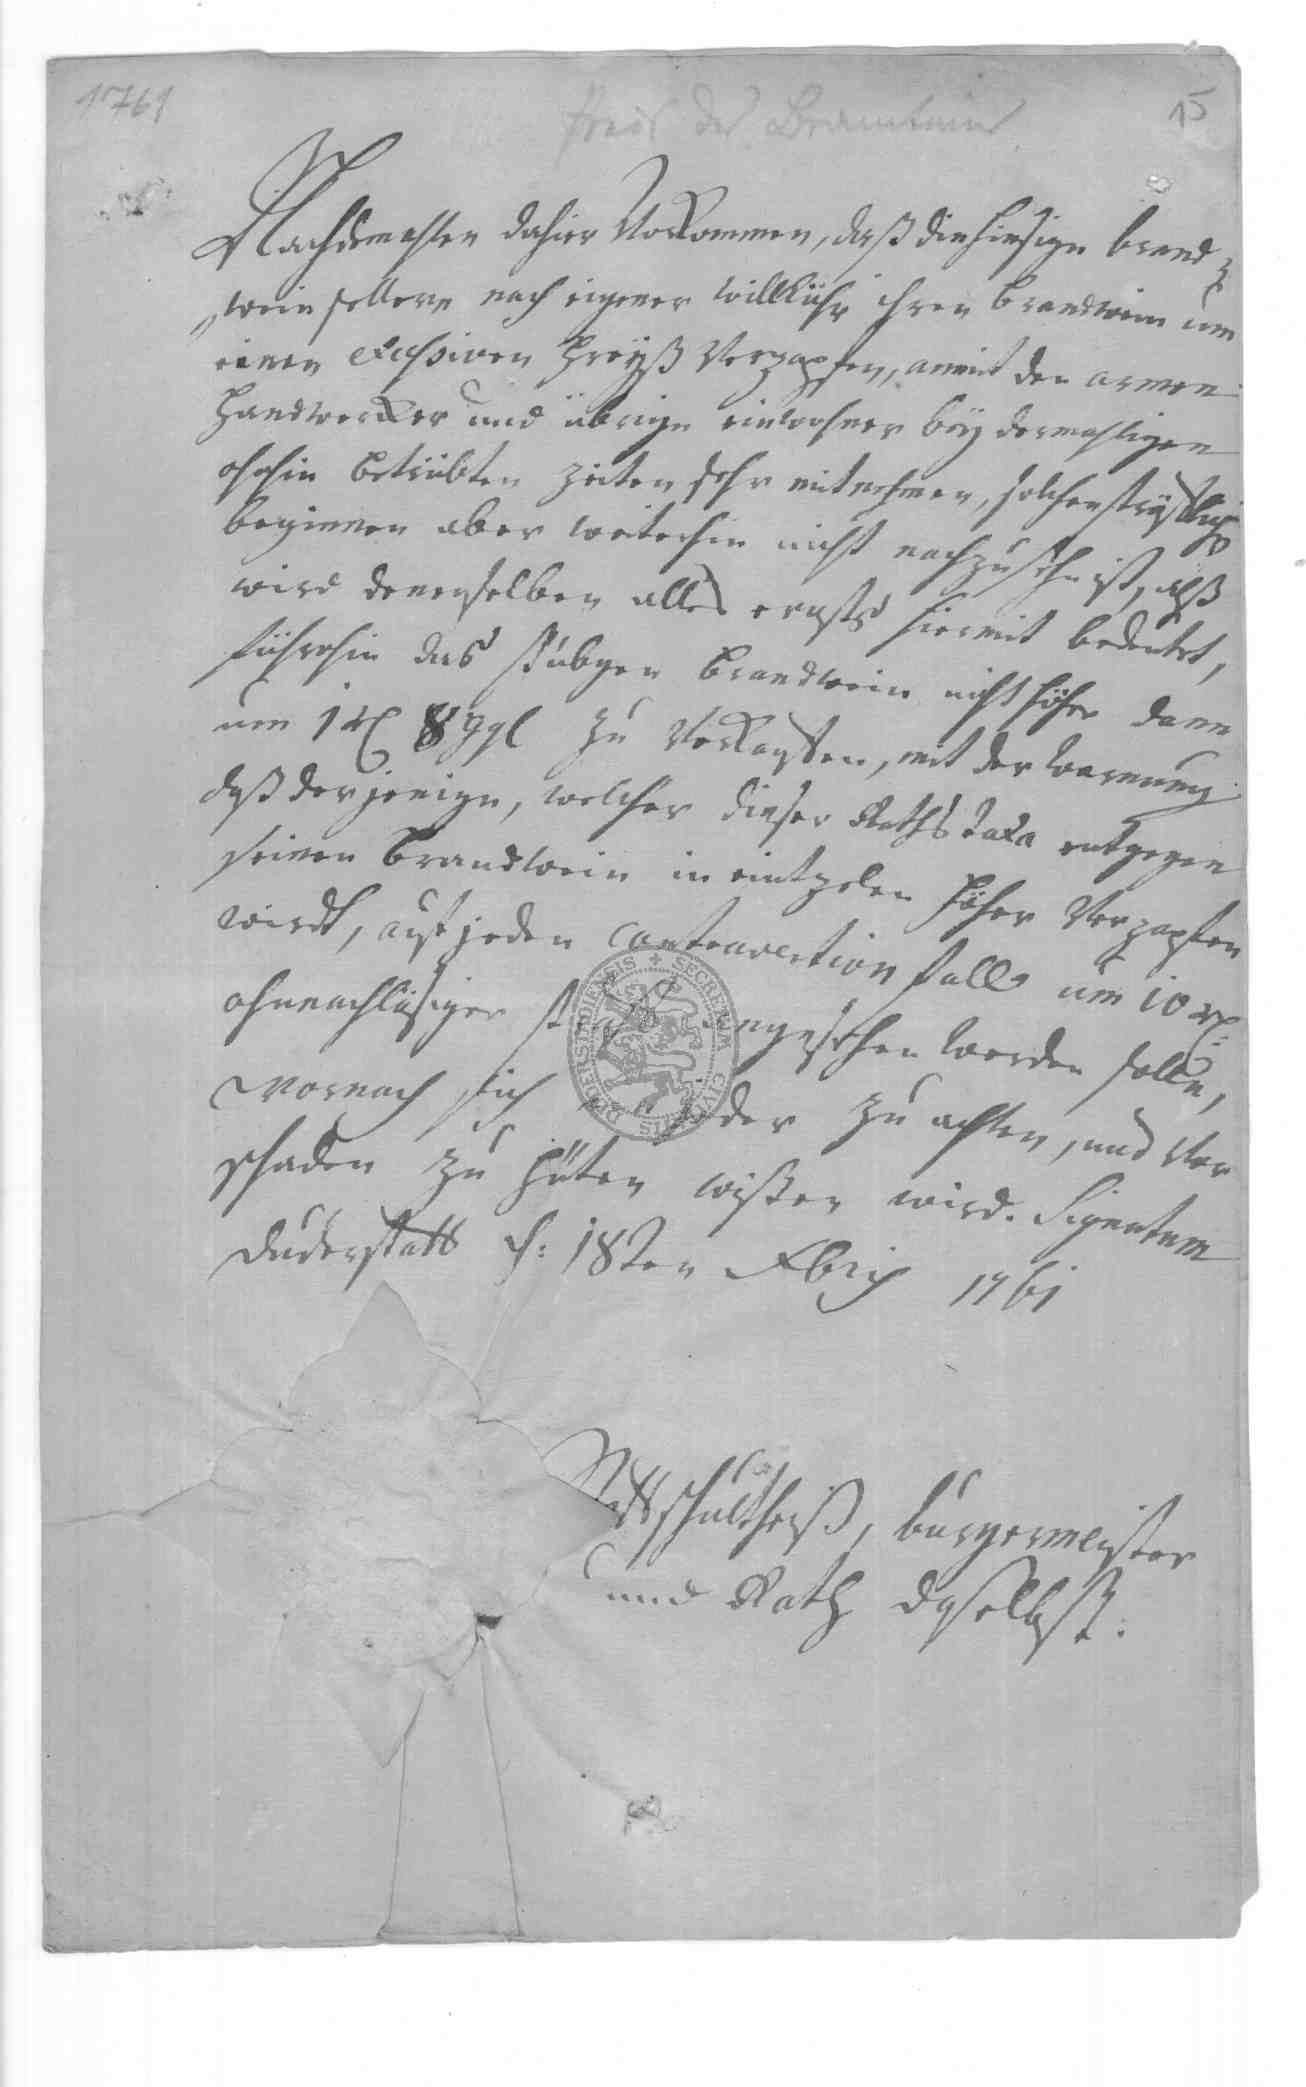 1761
Preis des Branntweins
15
Nachdemahlen dahier Vorkommen, daß die hiesige brand-
wein sellere nach eigener willkühr ihren brandwein um
einen excessiven Preyß Verzapfen, anmit den armen
Handwercker und übrige einwohner bey dermahligen
ohnhin betrübten Zeiten sehr mitnehmen, solchen
beginnen aber weiterhin nicht nachzusehen ist, alß
wird denenselben alles ernsts hiermit bedeutet,
führohin das stübgen brandwein nicht höher dann
um 1 rth 8 ggl zu Verkauffen, mit der warnung
daß derjenige, welcher dieser Raths taxa entgegen
seinen brandwein in eintzelen höher Verzapfen
wirdt, auf jeden contravention fall um 10 rth.
ohnnachläsiger straff angesehen werden solle,
wornach sich ein jeder zu achten, und Vor
schaden zu hüten wißen wird. Signatum
Duderstatt d: 18ten Xbris 1761
SECRETUM CIVITATIS DUDERSTADIENSIS
Stattschultheiß, burgermeister
und Rath daselbst.